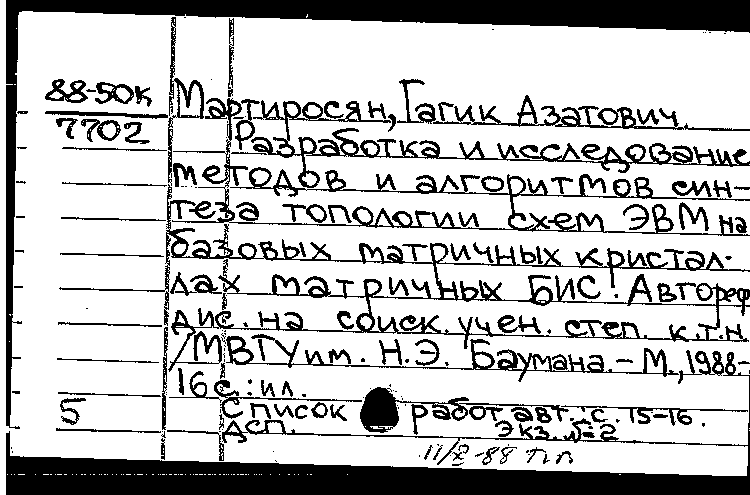 88-50к Мартиросян, Гагик Азатович.
7702 Разработка и исследование
методов и алгоритмов син-
теза топологии схем ЭВМ на
базовых матричных кристал-
лах матричных БИС: Автореф
дис. на соиск. учен. степ. к.т.н.
/МВТУ им. Н.Э. Баумана. – М., 1988.-
16 с.: ил.
5 Список работ авт.: с. 15-16.
ДСП. Экз. №2
11/X-88